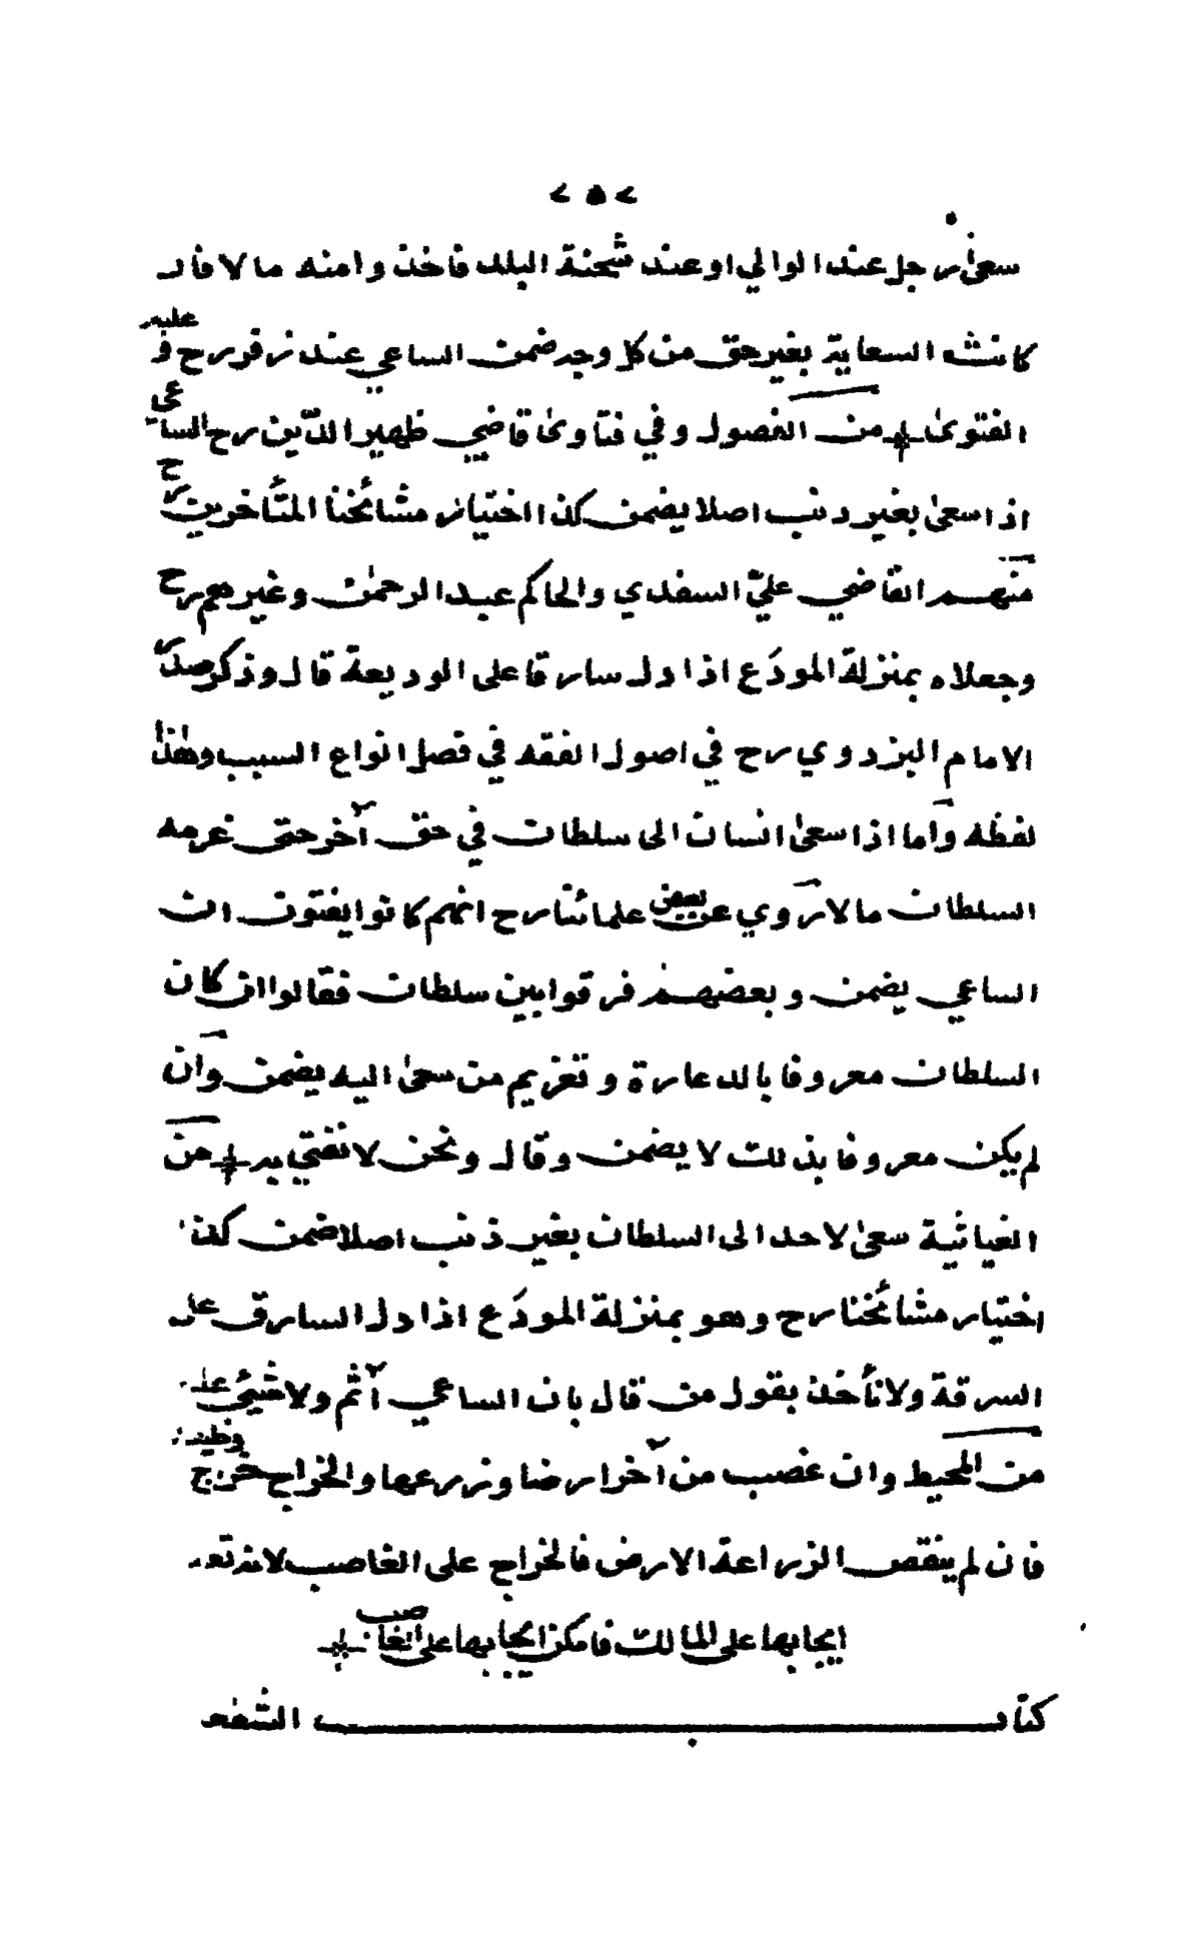 ٢٥٢
سعى رجل عند الوالي او عند شحنة البلد فاخذوا منه مالا فان
كانت السعاية بغير حق من كل وجه ضمن الساعي عند زفر رح و عليه
الفتوى من الفصول وفي فتاوى قاضي ظهير الدّين رح الساعي
اذا سعى بغير ذنب اصلا يضمن كذا اختيار مشائخنا المتأخرين رح
منهم القاضي عليّ السغدي والحاكم عبد الرحمن وغيرهم رح
وجعلاه بمنزلة المودَع اذا دل سارقا على الوديعة قال وذكر صدر
الامام البزدوي رح في اصول الفقه في فصل انواع السبب وهذا
لفظه وَاما اذا سعى انسان الى سلطان في حق آخر حتى غرمه
السلطان مالا رُوي عن بعض علمائنا رح انهم كانوا يفتون ان
الساعي يضمن وبعضهم فرقوا بين سلطان فقالوا ان كان
السلطان معروفا بالدعارة وتغريم من سعى اليه يضمن وَان
لم يكن معروفا بذلك لا يضمن وقال ونحن لا نفتي به من
الغياثية سعى لاحد الى السلطان بغير ذنب اصلا ضمن كذا
اختيار مشائخنا رح وهو بمنزلة المودَع اذا دل السارق على
السرقة ولا نأخذ بقول من قال بان الساعي آثم ولا شيئ عليه
من المحيط وان غصب من آخر ارضا وزرعها والخراج خراج وظيفة
فان لم ينقص الزراعة الارض فالخراج على الغاصب لانه تعذر
ايجابها على المالك فامكن ايجابها على الغاصب
كتاب الشفعة